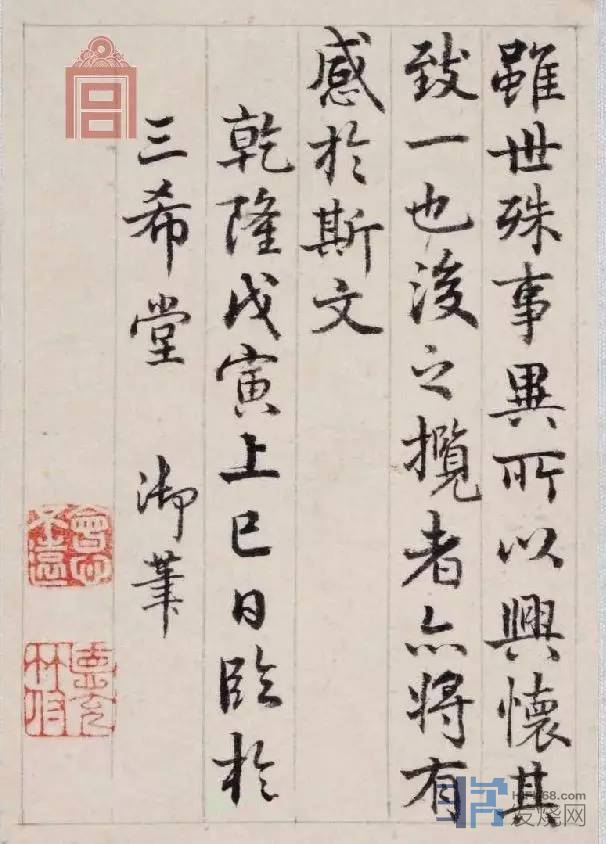 雖世殊事異所以興懷其
致一也後之攬者亦將有
感於斯文
乾隆戊寅上巳日臨於
三希堂 御筆
會心不遠
发烧网